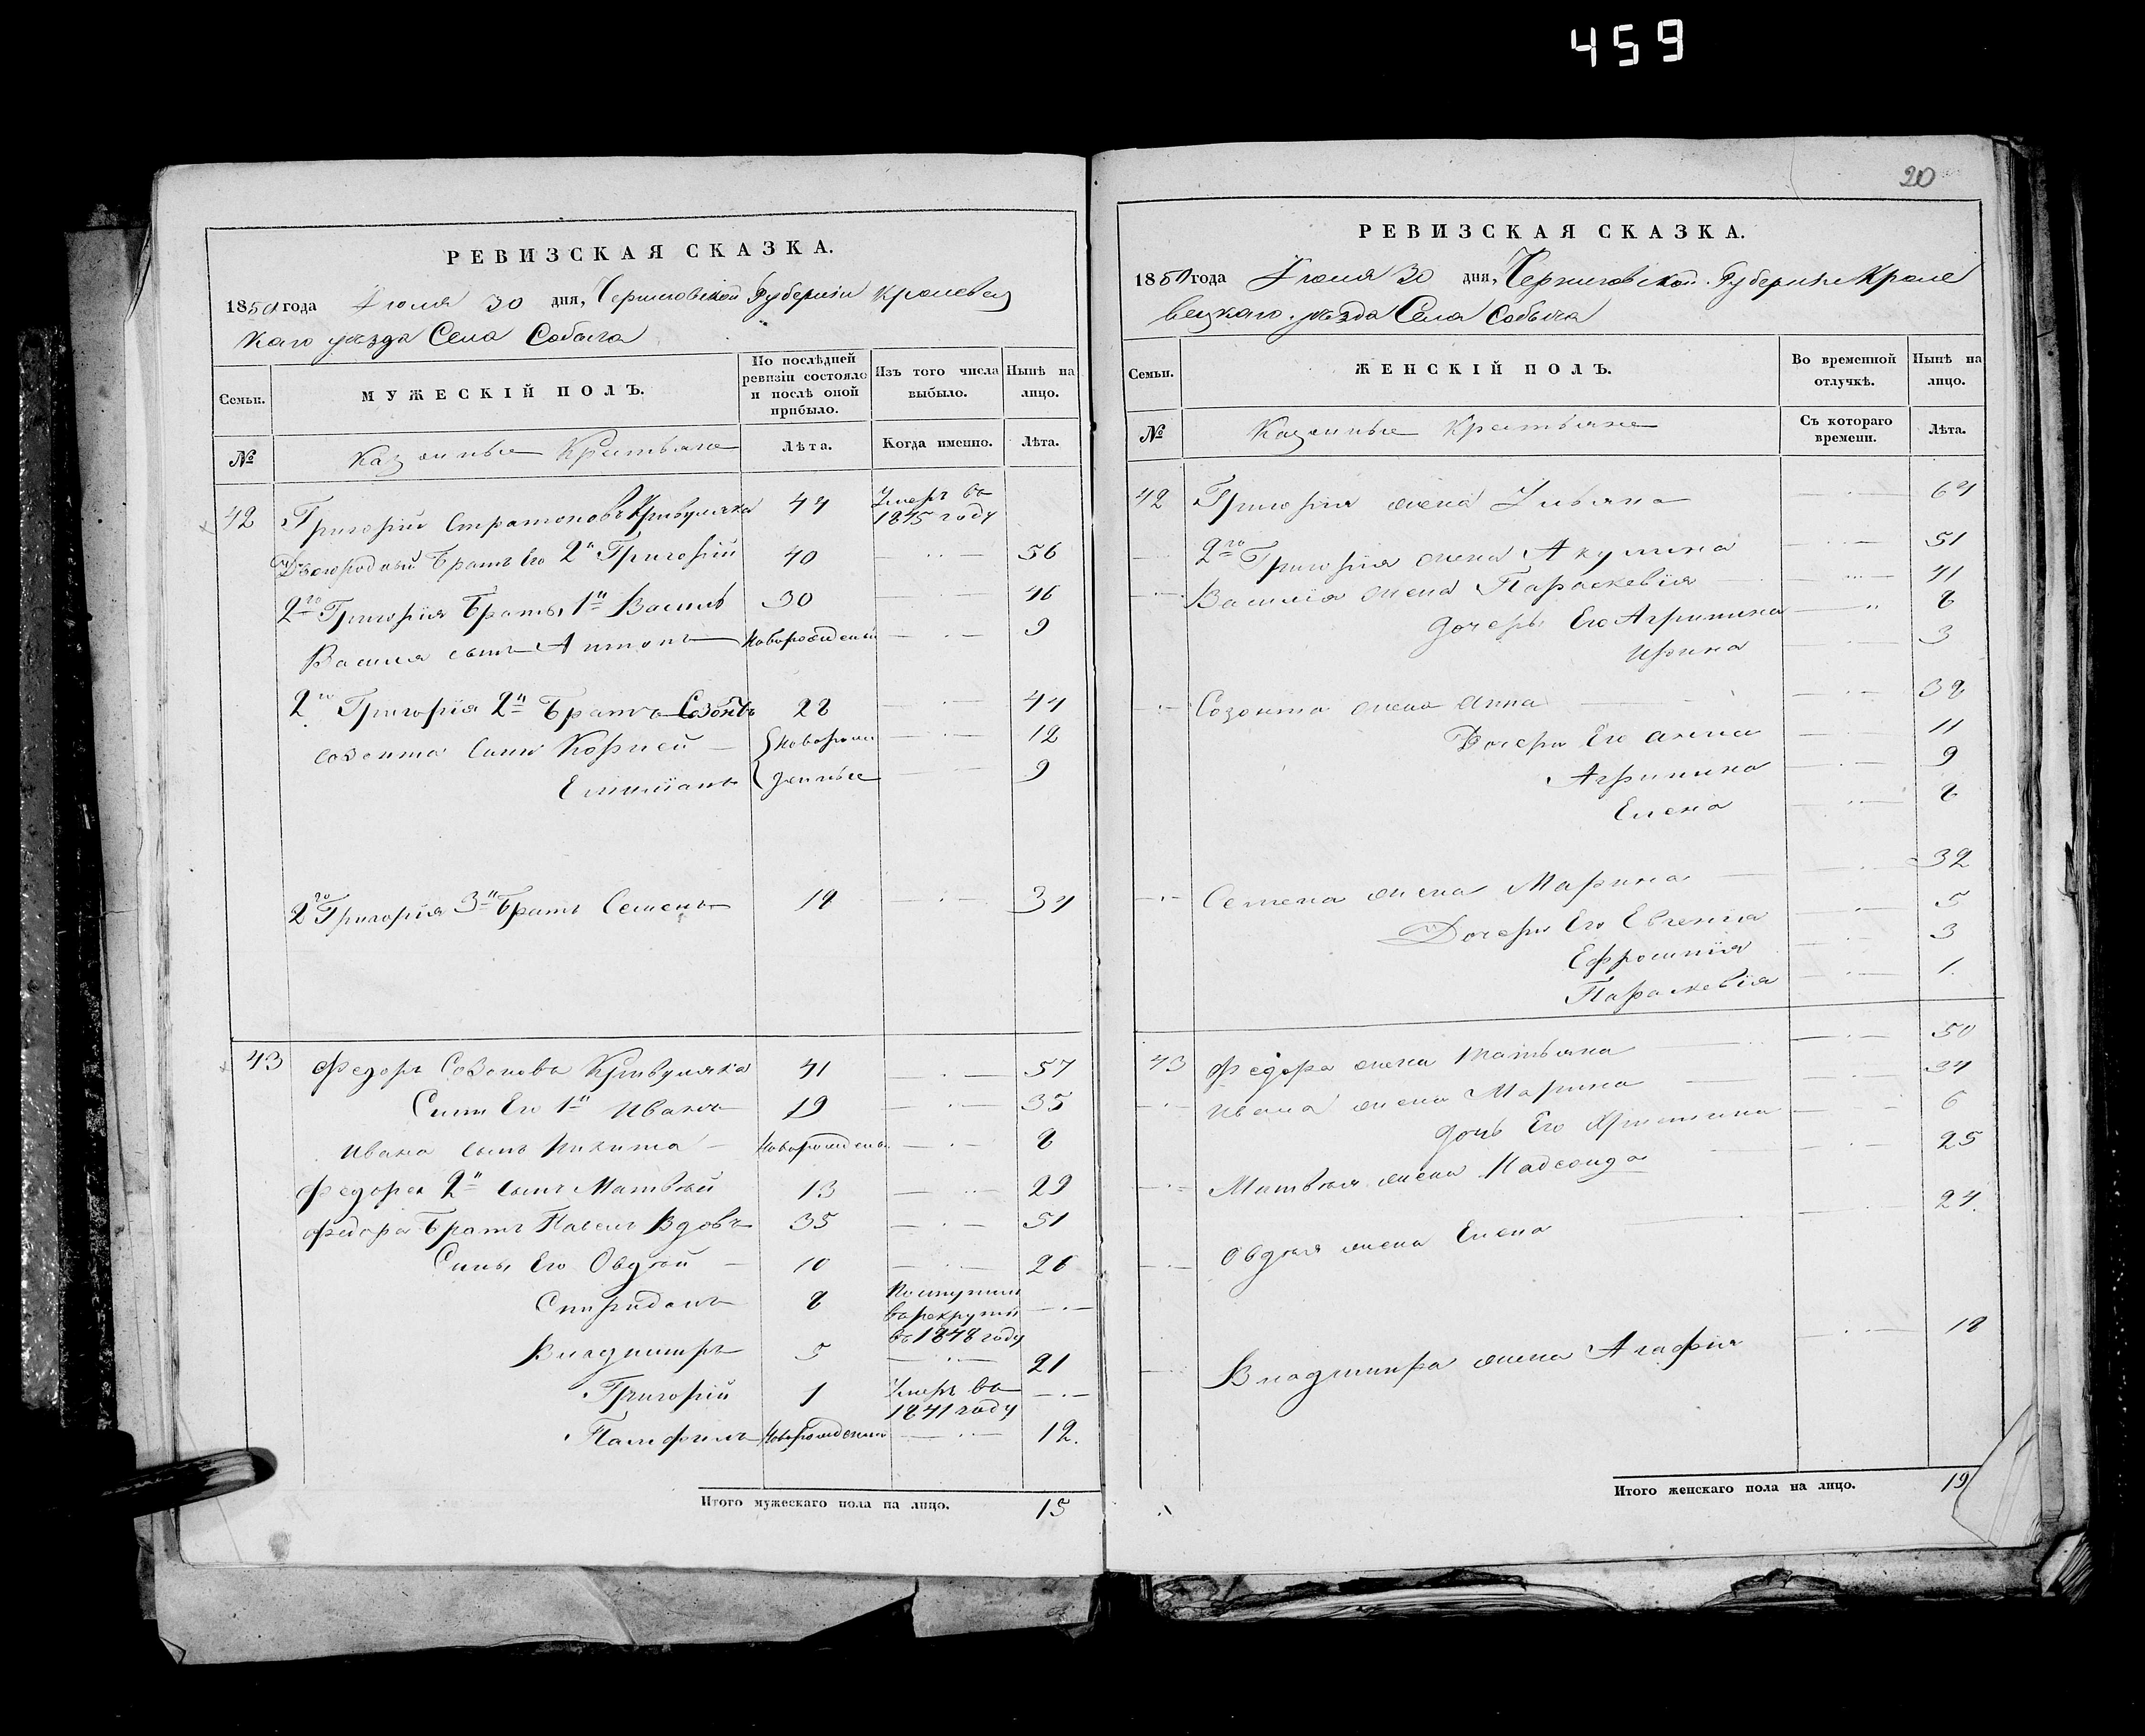 459
РЕВИЗСКАЯ СКАЗКА.
1850 года Іюля 30 дня, Черниговской Губерніи Кролевец
каго уѣзда Села Собыча
Семьи. МУЖЕСКІЙ ПОЛЪ. По послѣдней ревизіи состояло и послѣ оной прибыло. Изъ того числа выбыло. Нынѣ на лицо.
№ Казенные Крестьяне Лѣта. Когда именно. Лѣта.
42 Григорій Стратоновъ Кривуляка 44 Умеръ въ 1845 году
Двоюродный Братъ Его 2й Григорій 40 56
2го Григорія Братья 1й Василь 30 46
Василя сынъ Антонъ Новорожденный 9
2го Григорія 2й Братъ Созонтъ 28 44
Созонта Сыны Корней Новорож 12
Емилиянъ денные 9
2го Григорія 3й Братъ Семенъ 18 34
43 Федоръ Созоновъ Кривуляка 41 57
Сынъ Его 1й Иванъ 19 35
Ивана сынъ Никита Новорожденъ 8
Федора 2й сынъ Матвѣй 13 29
Федора Братъ Павелъ Вдовъ 35 51
Сыны Его Овдѣй 10 26
Спиридонъ 8 Поступилъ
в рекруты
въ 1848 году
Владимиръ 5 21
Григорій 1 Умеръ въ
1841 году
Памфилъ Новорожденный 12.
Итого мужескаго пола на лицо. 15
20
РЕВИЗСКАЯ СКАЗКА.
1850 года Іюля 30 дня, Черниговской Губерніи Кроле
вецкаго уѣзда Села Собыча
Семьи. ЖЕНСКІЙ ПОЛЪ. Во временной отлучкѣ. Нынѣ на лицо.
№ Казенные Крестьяне Съ котораго времени. Лѣта.
42 Григорія жена Ульяна 64
2го Григорія жена Акулина 51
Василія жена Параскевія 41
Дочеры Его Агрипина 8
Ирина 3
Созонта жена Анна 38
Дочери Его Анна 11
Агрипина 9
Елена 8
Семена жена Марина 32
Дочери Его Евгенія 5
Ефросинія 3
Параскевія 1.
43 Федора жена Татьяна 50
Ивана жена Марина 34
Дочь Его Христина 6
Матвѣя жена 25
Овдѣя жена Елена 24.
Владимира жена Агафія 18
Итого женскаго пола на лицо. 19